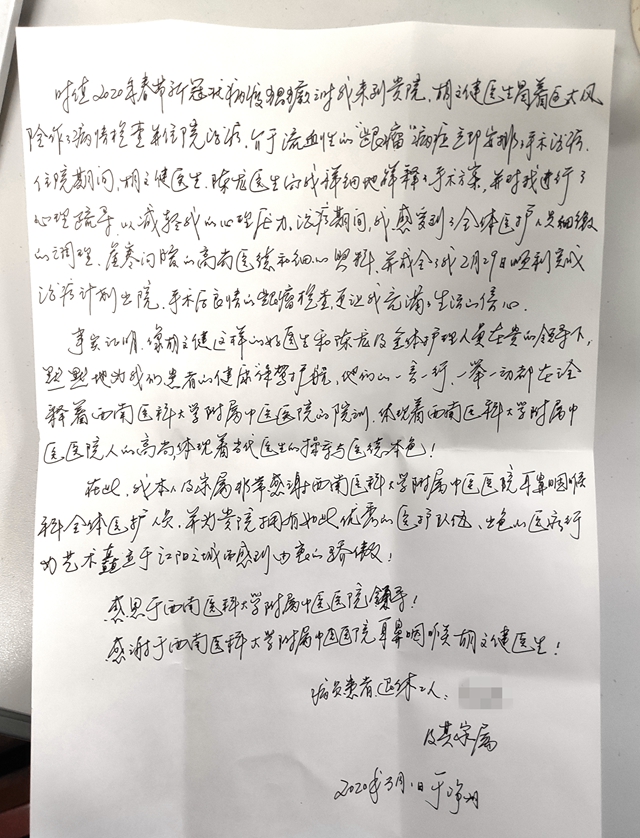 时值2020年春节新冠状病情猖獗之时我来到贵院，胡文健医生冒着巨大风
险作了病情检查并住院治疗，鉴于流血性的"龈瘤"病症立即安排了手术治疗。
住院期间，胡文健医生、陈龙医生向我详细地解释了手术方案，并对我进行了
心理疏导，以减轻我的心理压力。治疗期间，我感受到了全体医护人员细緻
的调理、嘘寒问暖的高尚医德和细心照料，并成全了我2月29日顺利完成
治疗计划出院。手术后良情的龈瘤检查更让我充满了生活的信心。
事实证明，像胡文健这样的好医生和陈龙及全体护理人员在贵的领导下，
默默地为我们患者的健康保驾护航，他们的一言一行、一举一动都在诠
释着西南医科大学附属中医医院的院训，体现着西南医科大学附属中
医医院人的高尚，体现着当代医生的操守与医德本色！
在此，我本人及家属非常感谢西南医科大学附属中医医院耳鼻咽喉
科全体医护人员，并为贵院拥有如此优秀的医护队伍、出色的医疗行
为艺术矗立于江阳之城而感到由衷的骄傲！
感恩于西南医科大学附属中医医院领导！
感谢于西南医科大学附属中医医院耳鼻咽喉胡文健医生！
病员患者退休工人：
及其家属
2020年3月1日于泸州